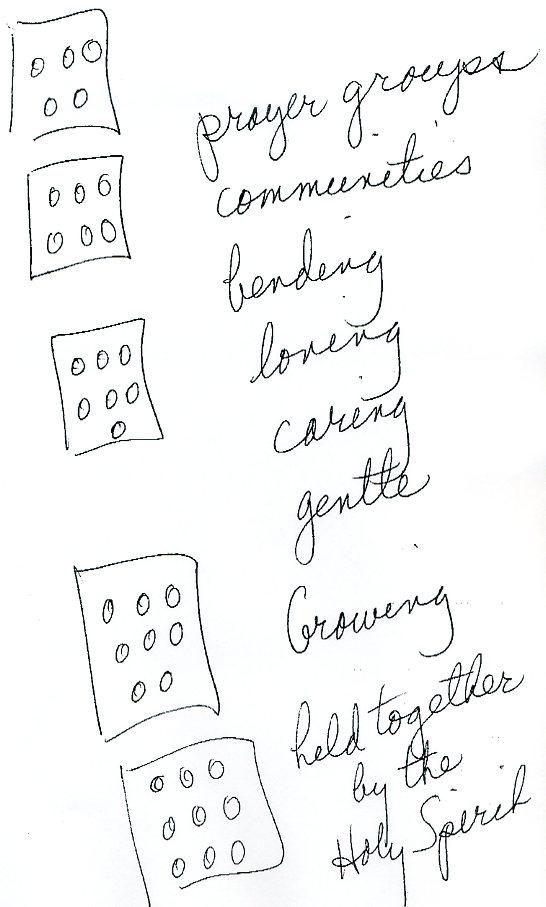 prayer groups
communities
bending
loving
caring
gentle
Growing
held together
by the
Holy Spirit